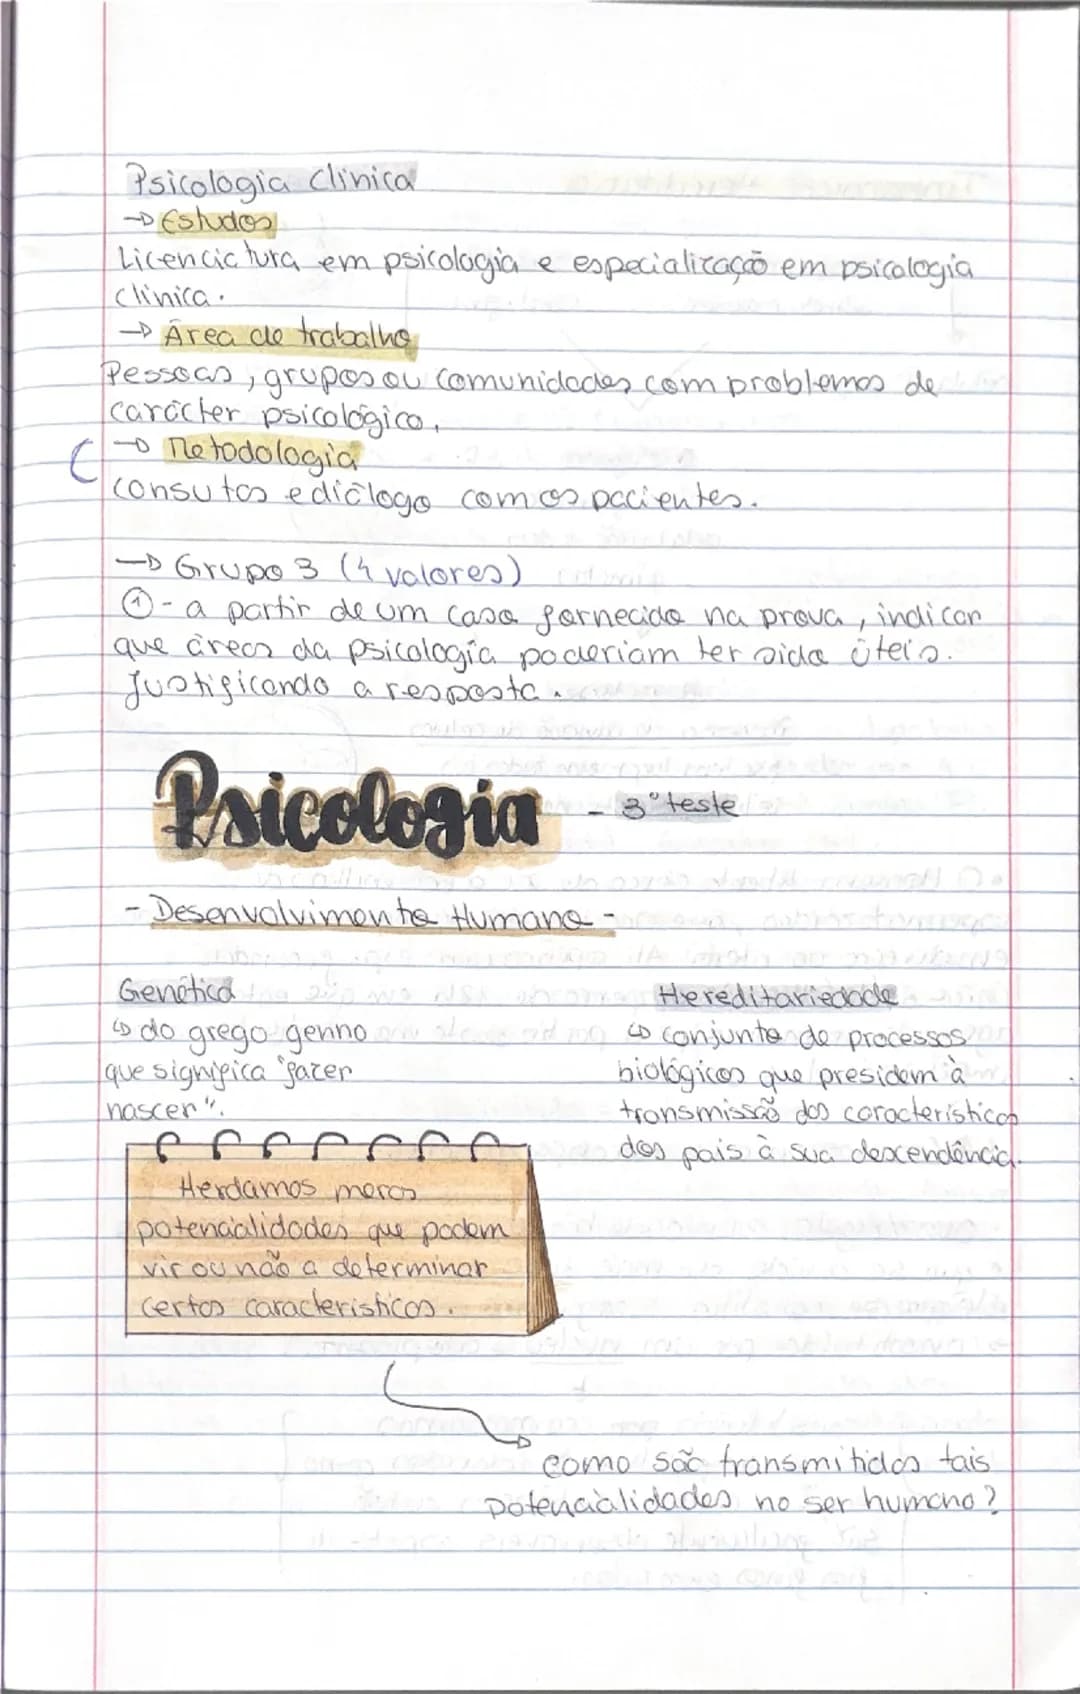 Psicologia Clínica
→ Estudos
Licencictura em psicologia e especialização em psicologia
clínica.
→ Área de trabalho
Pessoas, grupos ou comunidades com problemas de
carácter psicológico.
→ Metodologia
Consutas e diálogo com os pacientes.
→ Grupo 3 (4 valores)
① - a partir de um caso fornecido na prova, indicar
que áreas da psicologia poderiam ter sido úteis.
Justificando a resposta.
Psicologia - 3º teste
- Desenvolvimento Humano -
Genética
↳ do grego genno
que significa "fazer
nascer".
Hereditariedade
↳ conjunto de processos
biológicos que presidem à
transmissão das características
dos pais à sua descendência.
Herdamos meras
potencialidades que podem
vir ou não a determinar
certas características.
como são transmitidas tais
potencialidades no ser humano?